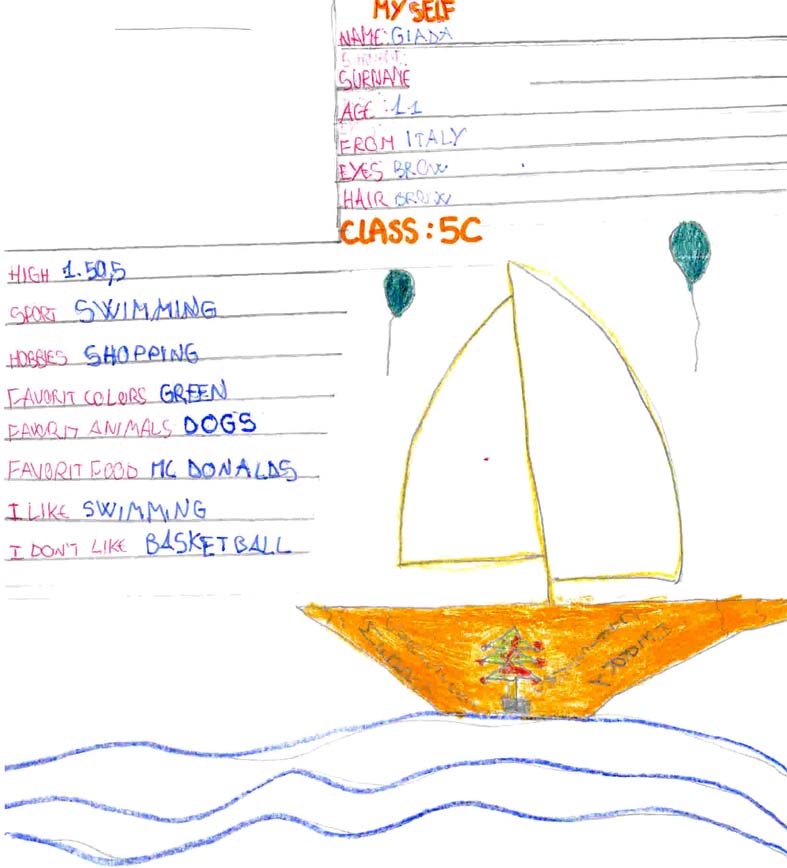 MY SELF
NAME: GIADA
SURNAME
AGE: 11
FROM ITALY
EYES BROW
HAIR BROW
CLASS: 5C
HIGH 1.50,5
SPORT SWIMMING
HOBBIES SHOPPING
FAVORIT COLORS GREEN
FAVORIT ANIMALS DOGS
FAVORIT FOOD MC DONALDS
I LIKE SWIMMING
I DON'T LIKE BASKETBALL